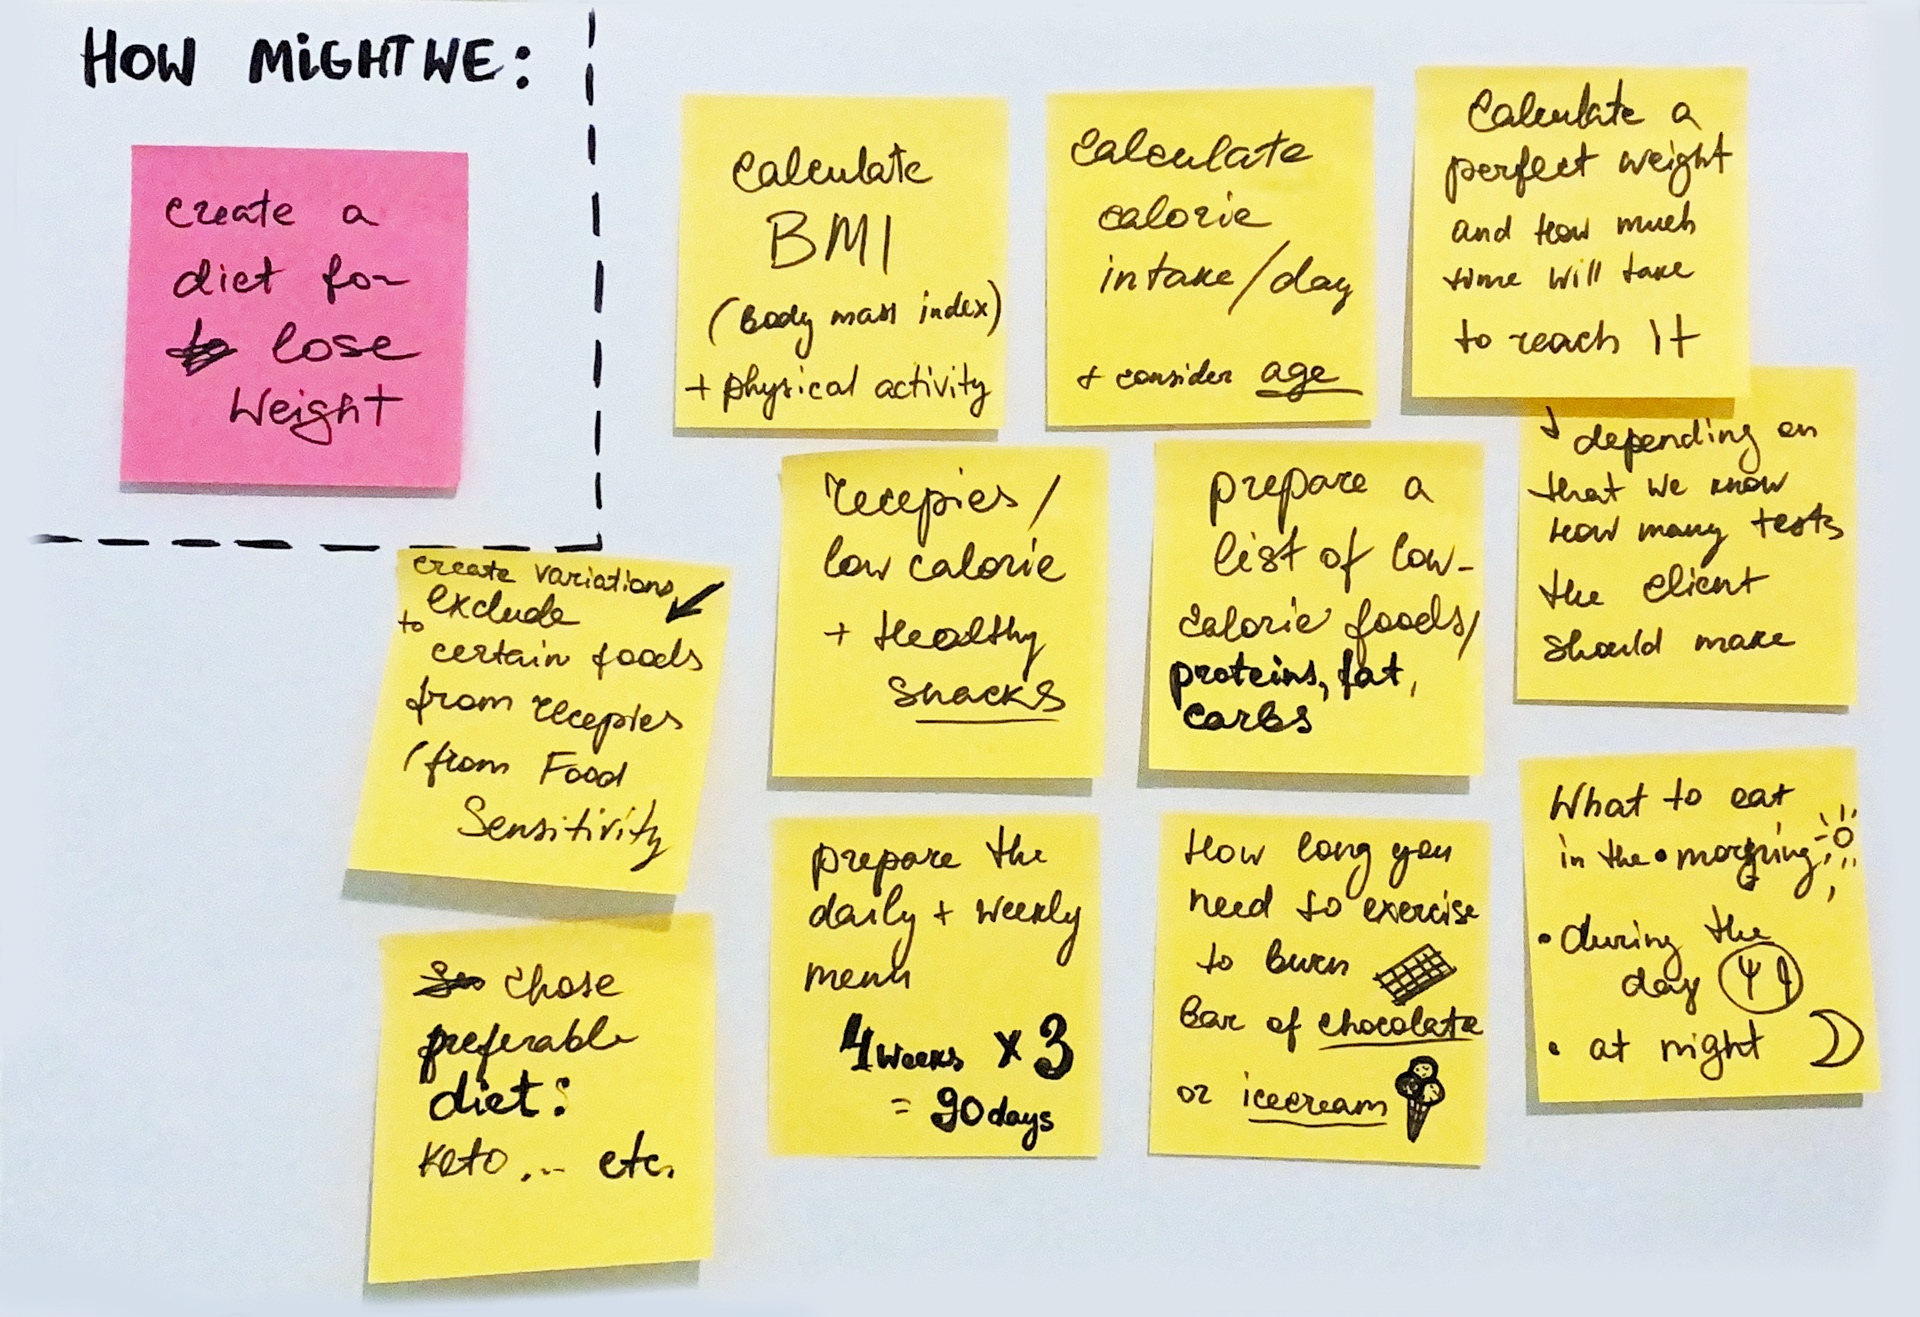 HOW MIGHT WE:
create a
diet for
lose
Weight
Calculate
BMI
(Body mass index)
+ physical activity
Calculate
calorie
intake/day
+ consider age
Calculate a
perfect weight
and how much
time will take
to reach it
depending on
that we know
how many tests
the client
should make
recepies/
low calorie
+ Healthy
snacks
prepare a
list of low-
calorie foods/
proteins, fat,
carbs
create variations
to exclude
certain foods
from recepies
(from Food
Sensitivity
chose
preferable
diet:
Keto, ... etc.
prepare the
daily + weekly
menu
4 weeks x 3
= 90 days
How long you
need to exercise
to burn
Bar of chocolate
or icecream
What to eat
in the • morning
• during the
day
• at night